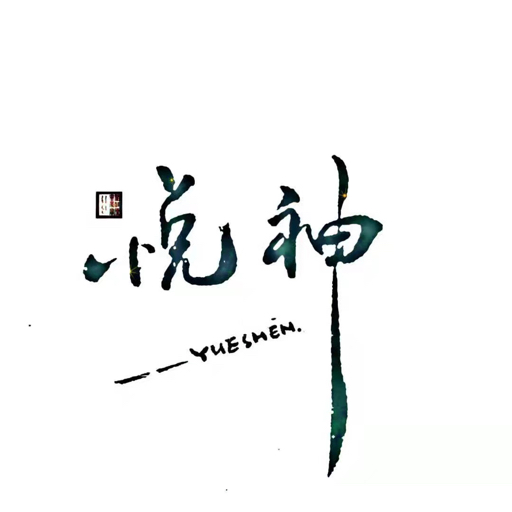 悦神
——YUESHEN.